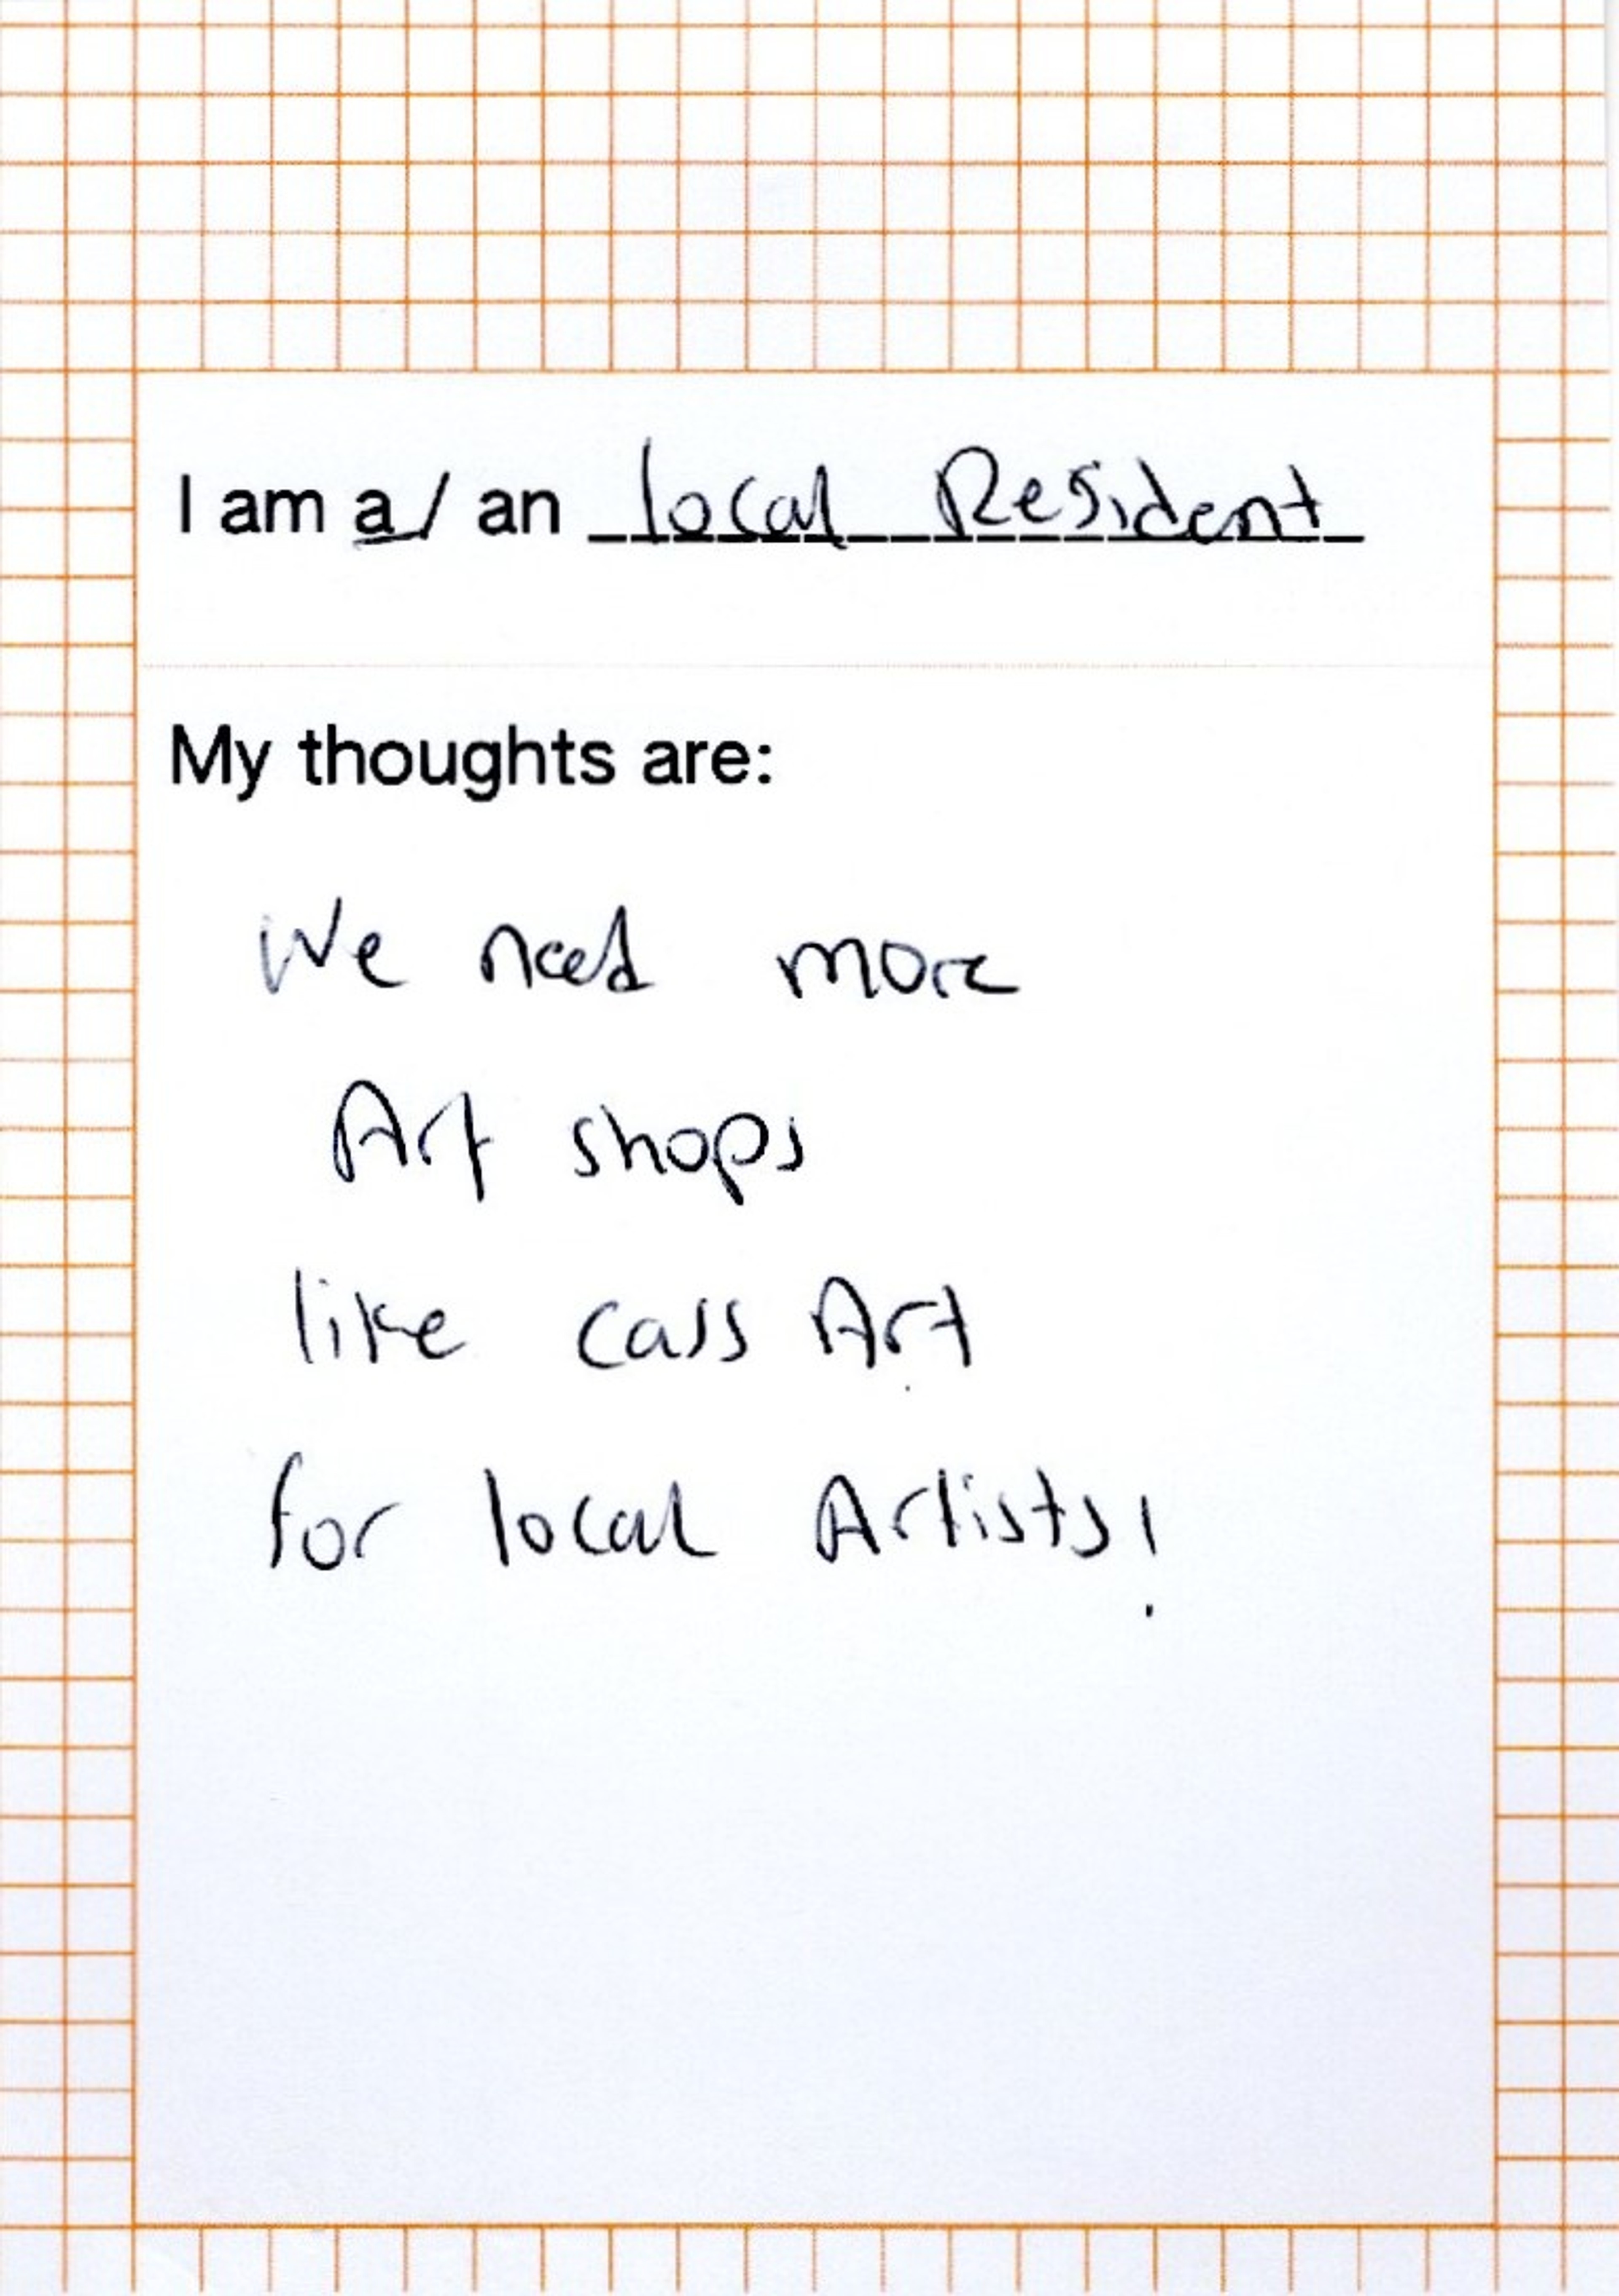 I am a / an local Resident
My thoughts are:
We need more
Art shops
like cass Art
for local Artists!